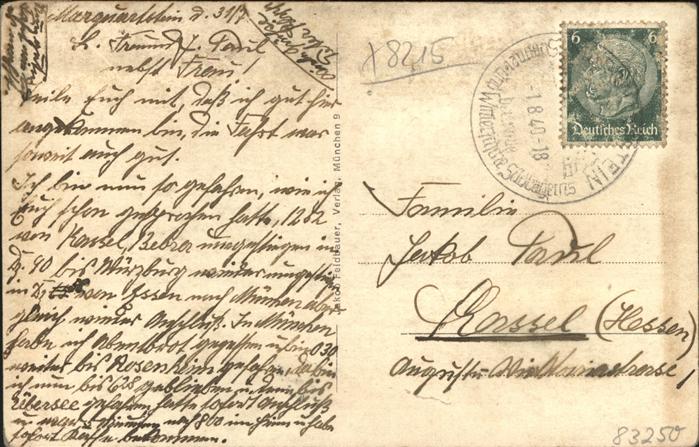 Marquartstein d. 31/7
Lb. Freund J. Paul
nebst Frau!
Teile Euch mit, daß ich gut hier
angekommen bin, die Fahrt war
soweit auch gut.
Ich bin nun so gefahren, wie ich
Euch schon gesprochen hatte, 1202
von Kassel, Bebra umgestiegen in
D. 90 bis Würzburg wieder umgestiegen
in von Essen nach München
gleich wieder Anschluß. In München
habe ich Abendbrot gegessen u bin 030
weiter bis Rosenheim gefahren, da bin
ich nun bis 628 geblieben u. dann bis
Übersee gefahren, hatte sofort Anschluß
u. war 800 im Heim u habe
sofort Kaffee bekommen.
Jakob Feldbauer, Verlag, München 9
x 8215
-1.8.40-18
6 6
Deutsches Reich
Familie
Jakob Paul
Kassel (Hessen)
Auguste-Viktoriastrasse
83250